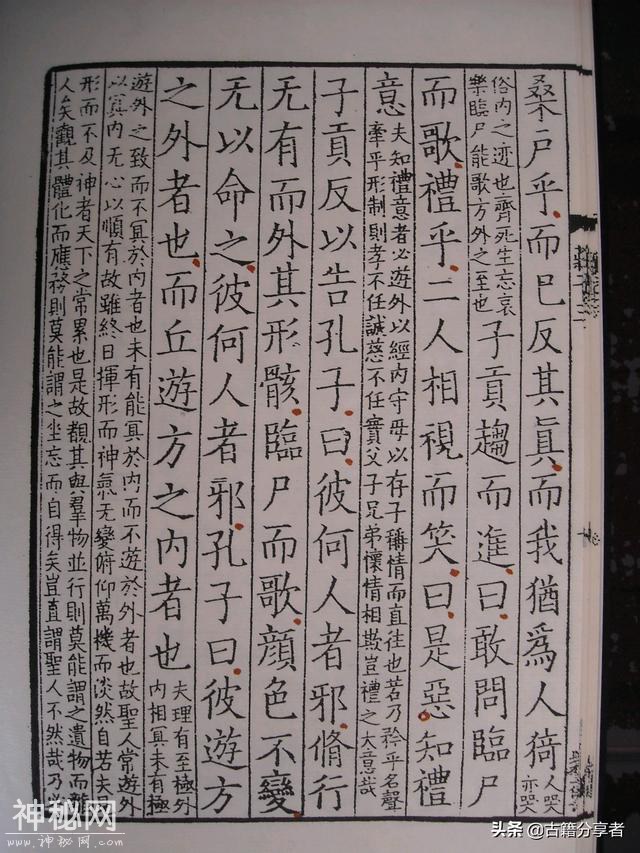 桑戶乎而已反其真而我猶爲人猗人哭
亦哭
俗內之迹也齊死生忘哀
樂臨尸能歌方外之至也
子貢趨而進曰敢問臨尸
而歌禮乎二人相視而笑曰是惡知禮
意
夫知禮意者必遊外以經內守母以存子稱情而直往也若乃矜乎名聲
牽乎形制則孝不任誠慈不任實父子兄弟懷情相欺豈禮之大意哉
子貢反以告孔子曰彼何人者邪脩行
无有而外其形骸臨尸而歌顏色不變
无以命之彼何人者邪孔子曰彼遊方
之外者也而丘遊方之內者也
夫理有至極外
內相冥未有極
遊外之致而不冥於內者也未有能冥於內而不遊於外者也故聖人常遊外
以冥內无心以順有故雖終日揮形而神氣无變俯仰萬機而淡然自若夫
形而不及神者天下之常累也是故覩其與羣物並行則莫能謂之遺物而離
人矣觀其體化而應務則莫能謂之坐忘而自得矣豈直謂聖人不然哉乃必
神秘网
www.神秘网.com
头条 @古籍分享者